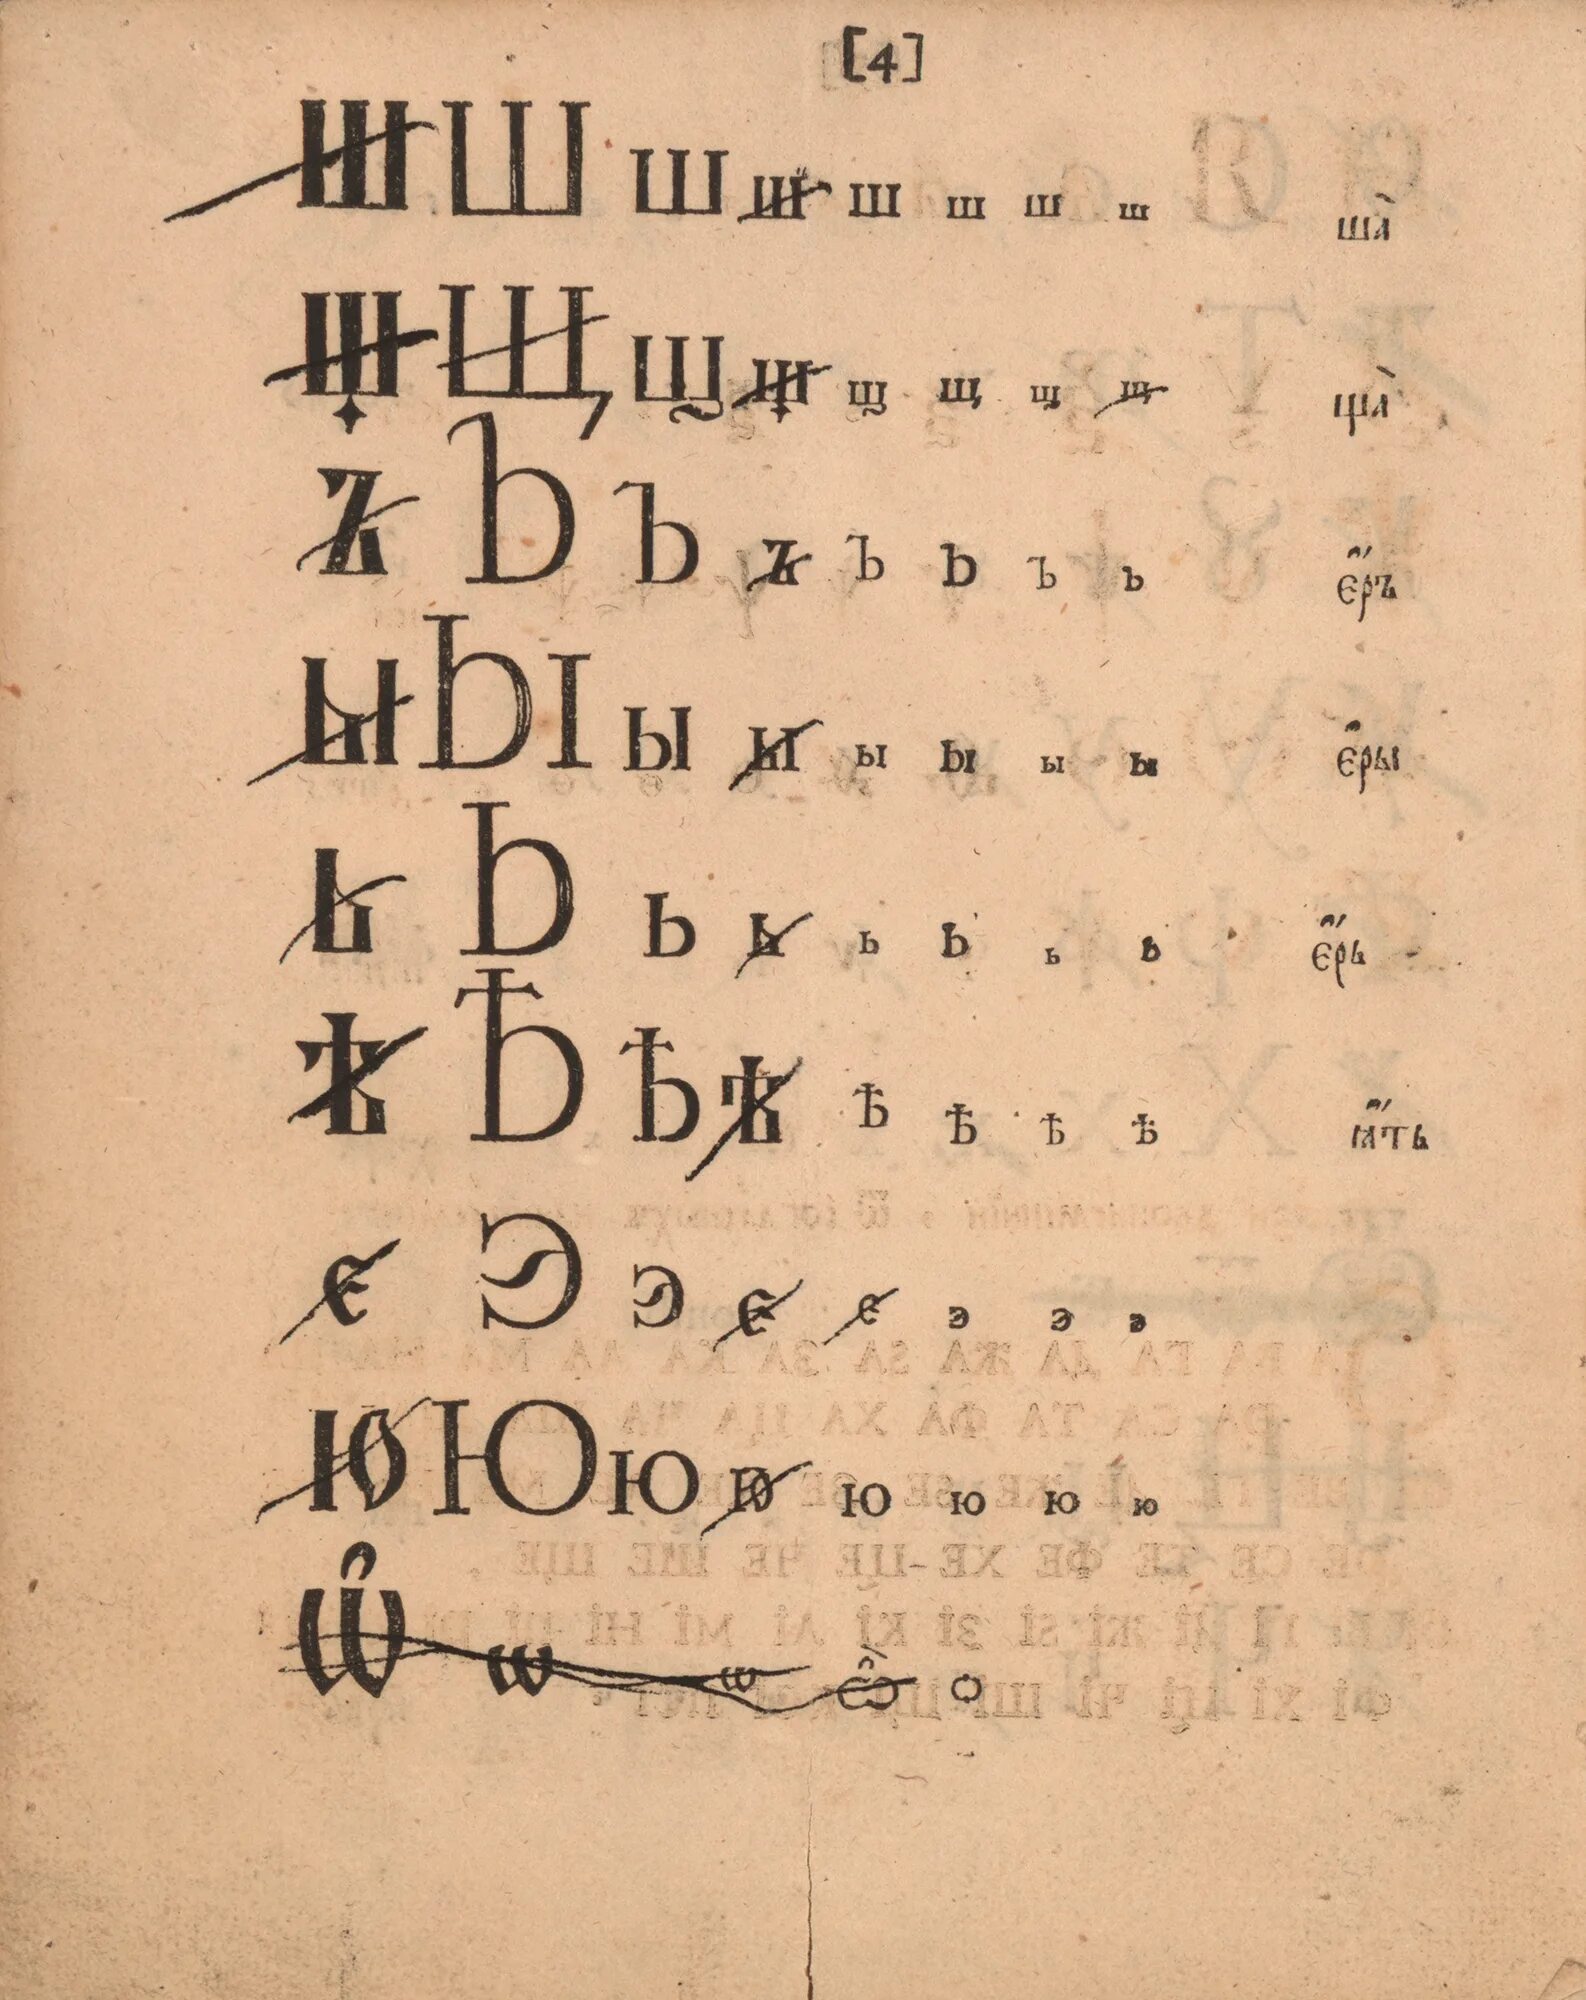 [4]
Ш Ш ш ш ш ш ш ш ша̀
Щ Щ щ щ щ щ щ щ ща̀
Ъ Ъ ъ ъ ъ ъ ъ ъ є҆́ръ
Ы Ы ы ы ы ы ы ы є҆ры̀
Ь Ь ь ь ь ь ь ь є҆́рь
Ѣ Ѣ ѣ ѣ ѣ ѣ ѣ ѣ ꙗ҆́ть
Є Э э є є э э э
Ю Ю ю ю ю ю ю ю
Ѽ ѡ ѡ ѽ